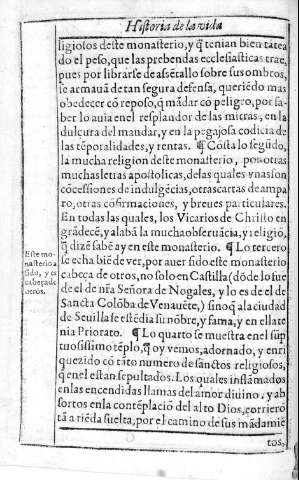 Historia de la vida
ligiosos deste monasterio, y q̃ tenian bien tātea
do el peso, que las prebendas ecclesiasticas trae,
pues por librarse de asẽtallo sobre sus ombros,
se armauā de tan segura defensa, queriẽdo mas
obedecer cō reposo, q̃ mādar cō peligro, por sa-
ber lo auia en el resplandor de las mitras, en la
dulçura del mandar, y en la pegajosa codicia de
las tẽporalidades, y rentas. ¶ Cōsta lo segūdo,
la mucha religion deste monasterio, por otras
muchas letras apostolicas, de las quales vnas son
cōcessiones de indulgẽcias, otras cartas de ampa
ro, otras cōfirmaciones, y breues particulares.
En todas las quales, los Vicarios de Christo en
grādecẽ, y alabā la mucha obseruācia, y religiō,
q̃ dizẽ sabẽ ay en este monasterio. ¶ Lo tercero
se echa biẽ de ver, por auer sido este monasterio
cabeça de otros, no solo en Castilla (dōde lo fue
de el de nr̃a Señora de Nogales, y lo es de el de
Sancta Colōba de Venauẽte,) sino q̃ a la ciudad
de Seuilla se estẽdia su nōbre, y fama, y en ella te
nia Priorato. ¶ Lo quarto se muestra en el sūp
tuosissimo tẽplo, q̃ oy vemos, adornado, y enri
quezido cō tāto numero de sanctos religiosos,
q̃ en el estan sepultados. Los quales inflāmados
en las encendidas llamas del amor diuino, y ab
sortos en la contẽplaciō del alto Dios, corrierō
tā a riẽda suelta, por el camino de sus mādamiẽ
tos,
Este mo-
nasterio a
sido, y es
cabeça de
otros.